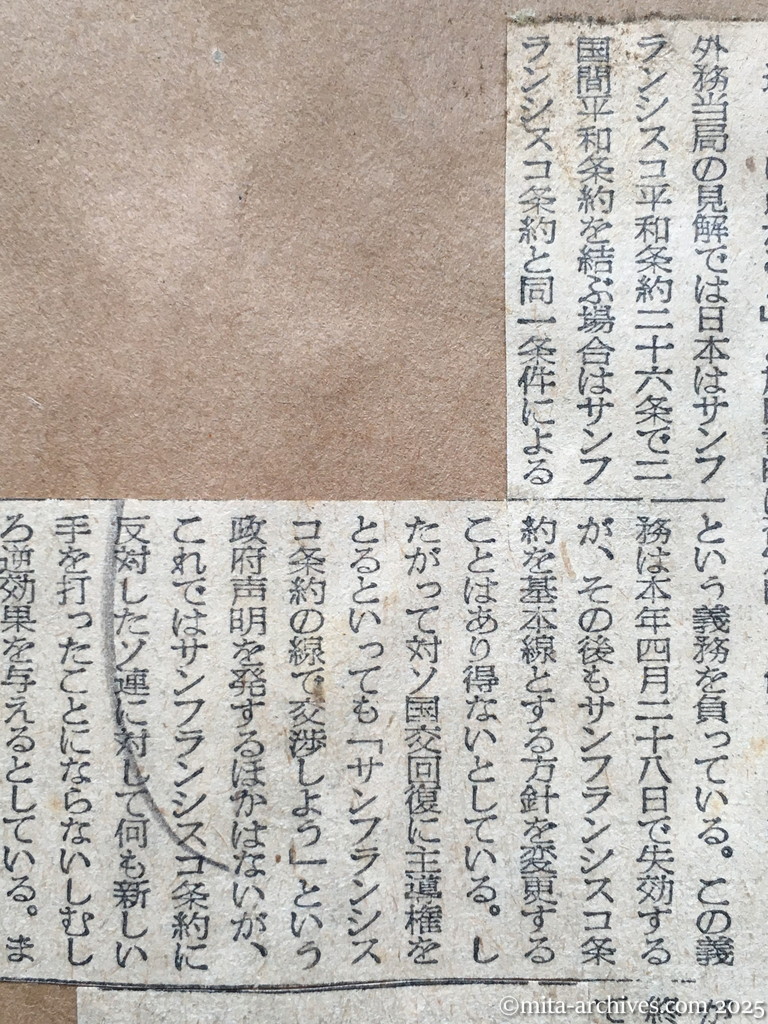 外務当局の見解では日本はサンフ
ランシスコ平和条約二十六条で二
国間平和条約を結ぶ場合はサンフ
ランシスコ条約と同一条件による
という義務を負っている。この義
務は本年四月二十八日で失効する
が、その後もサンフランシスコ条
約を基本線とする方針を変更する
ことはあり得ないとしている。し
たがって対ソ国交回復に主導権を
とるといっても「サンフランシス
コ条約の線で交渉しよう」という
政府声明を発するほかはないが、
これではサンフランシスコ条約に
反対したソ連に対して何も新しい
手を打ったことにならないしむし
ろ逆効果を与えるとしている。ま
©mita-archives.com 2025